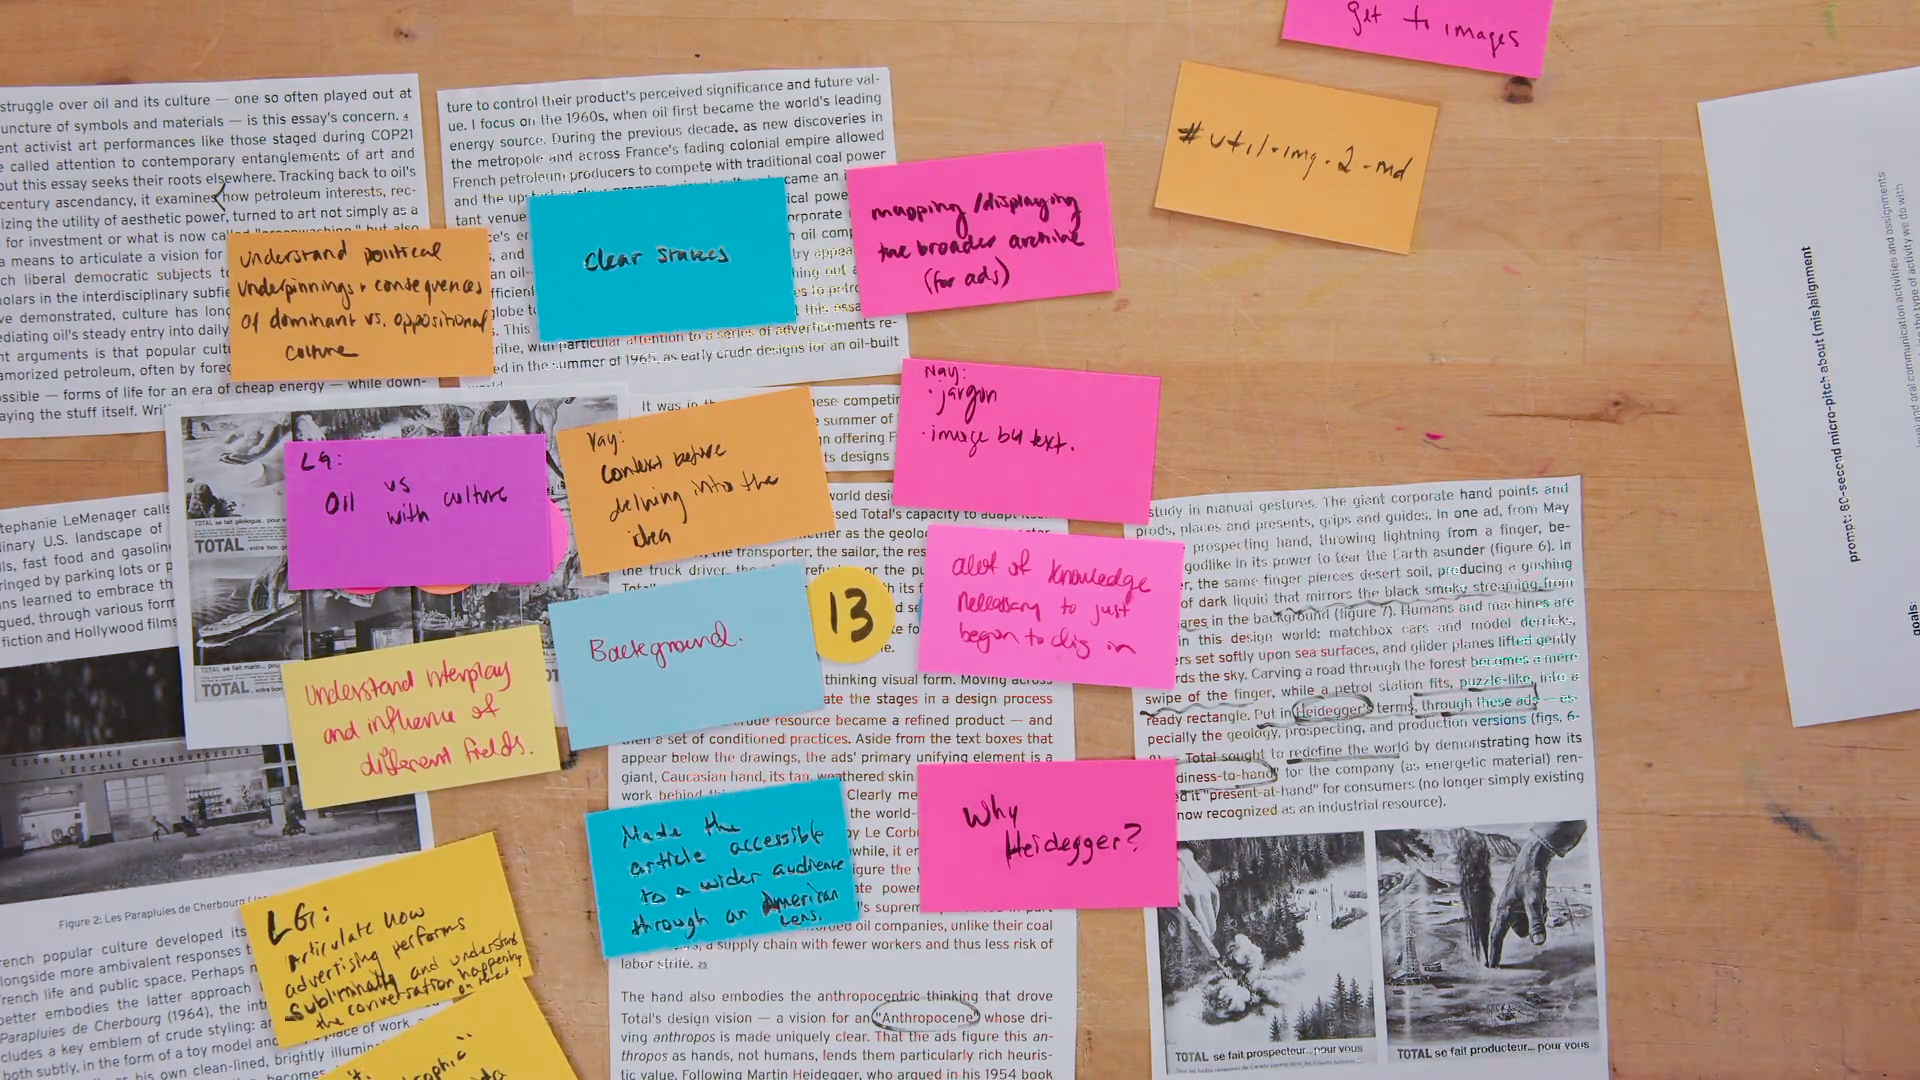 get to images
#util-img-2-md
struggle over oil and its culture — one so often played out at
uncture of symbols and materials — is this essay's concern. 4
ent activist art performances like those staged during COP21
e called attention to contemporary entanglements of art and
out this essay seeks their roots elsewhere. Tracking back to oil's
century ascendancy, it examines how petroleum interests, rec-
izing the utility of aesthetic power, turned to art not simply as a
for investment or what is now
a means to articulate a vision for
ch liberal democratic subjects
olars in the interdisciplinary
ve demonstrated, culture has
ediating oil's steady entry into daily
nt arguments is that popular
amorized petroleum, often by
ossible — forms of life for an era of cheap energy — while down-
aying the stuff itself.
ture to control their product's perceived significance and future val-
ue. I focus on the 1960s, when oil first became the world's leading
energy source. During the previous decade, as new discoveries in
the metropole and across France's fading colonial empire allowed
French petroleum producers to compete with traditional coal power
and the
tant venue
This
with particular attention to a series of advertisements re-
ed in the summer of 1965, as early crude designs for an oil-built
understand political
underpinnings + consequences
of dominant vs. oppositional
culture
clear stakes
mapping/displaying
the broader archive
(for ads)
LG:
Oil vs
with culture
Yay:
context before
delving into the
idea
Nay:
· jargon
· image b4 text.
It was in
summer of
offering
designs
Stephanie LeMenager calls
U.S. landscape of
fast food and
by parking lots or
learned to embrace
through various
fiction and Hollywood films
TOTAL
TOTAL
TOTAL
Understand interplay
and influence of
different fields.
Background.
13
alot of knowledge
necessary to just
begin to dig in
Total's capacity to
the transporter, the sailor, the
the truck driver,
thinking visual form. Moving across
the stages in a design process
resource became a refined product — and
then a set of conditioned practices. Aside from the text boxes that
appear below the drawings, the ads' primary unifying element is a
giant, Caucasian hand, its tan, weathered skin
work behind
Clearly
Made the
article accessible
to a wider audience
through an American
Lens.
Why
Heidegger?
oil companies, unlike their coal
a supply chain with fewer workers and thus less risk of
labor strife. 25
The hand also embodies the anthropocentric thinking that drove
Total's design vision — a vision for an "Anthropocene" whose dri-
ving anthropos is made uniquely clear. That the ads figure this an-
thropos as hands, not humans, lends them particularly rich heuris-
tic value. Following Martin Heidegger, who argued in his 1954 book
study in manual gestures. The giant corporate hand points and
prods, places and presents, grips and guides. In one ad, from May
prospecting hand, throwing lightning from a finger, be-
godlike in its power to tear the Earth asunder (figure 6). In
the same finger pierces desert soil, producing a gushing
of dark liquid that mirrors the black smoke streaming from
in the background (figure 7). Humans and machines are
in this design world: matchbox cars and model derricks,
set softly upon sea surfaces, and glider planes lifted gently
the sky. Carving a road through the forest becomes a mere
swipe of the finger, while a petrol station fits, puzzle-like, into a
ready rectangle. Put in Heidegger's terms, through these ads — es-
pecially the geology, prospecting, and production versions (figs. 6-
Total sought to redefine the world by demonstrating how its
diness-to-hand" for the company (as energetic material) ren-
ed it "present-at-hand" for consumers (no longer simply existing
now recognized as an industrial resource).
TOTAL se fait prospecteur... pour vous
TOTAL se fait producteur... pour vous
L'ESCALE CHERBOURGEOISE
Figure 2: Les Parapluies de Cherbourg
French popular culture developed its
alongside more ambivalent responses
French life and public space. Perhaps
better embodies the latter approach
Parapluies de Cherbourg (1964), the
includes a key emblem of crude styling:
both subtly, in the form of a toy model and
his own clean-lined, brightly
place of work,
LG:
Articulate how
advertising performs
subliminally and understand
the conversation happening
prompt: 60-second micro-pitch about (mis)alignment
goals:
oral communication activities and assignments
the type of activity we do with